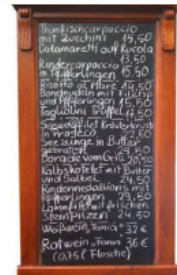 Thunfischcarpaccio
mit Zucchini 15,50
Calamaretti auf Rucola
13,50
Rindercarpaccio
m. Pfifferlingen 15,50
Risotto al Mare 14,50
Bandnudeln mit Filet
und Pfifferlingen 15,50
Tagliolini Trüffel 17,50
Seeteufelfilet
in Prosecco
Seezunge in Butter
gebraten
Dorade vom Grill 20,50
Kalbskotelett mit Butter
und Salbei 24,50
Rindermedaillons mit
Pfifferlingen 23,50
mit frischen
Steinpilzen 24,50
Weißwein 32 €
Rotwein 36 €
(0,75 l Flasche)